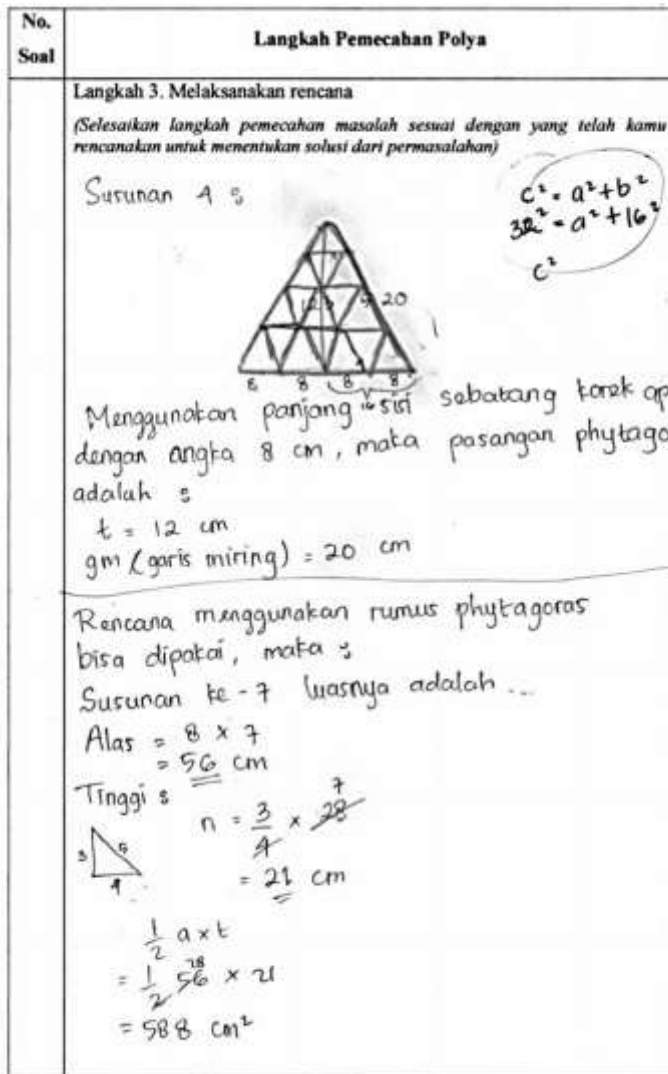 No. Soal
Langkah Pemecahan Polya
Langkah 3. Melaksanakan rencana
(Selesaikan langkah pemecahan masalah sesuai dengan yang telah kamu
rencanakan untuk menentukan solusi dari permasalahan)
Susunan 4 :
c² = a² + b²
32² = a² + 16²
c²
12 3 5 20
4
8 8 8 8
16
Menggunakan panjang sisi sebatang korek ap
dengan angka 8 cm, maka pasangan phytago
adalah :
t = 12 cm
gm (garis miring) = 20 cm
Rencana menggunakan rumus phytagoras
bisa dipakai, maka :
Susunan ke - 7 luasnya adalah ...
Alas = 8 × 7
= 56 cm
Tinggi :
3 5
4
n = 3/4 × 28 7
= 21 cm
1/2 a × t
= 1/2 56 28 × 21
= 588 cm²